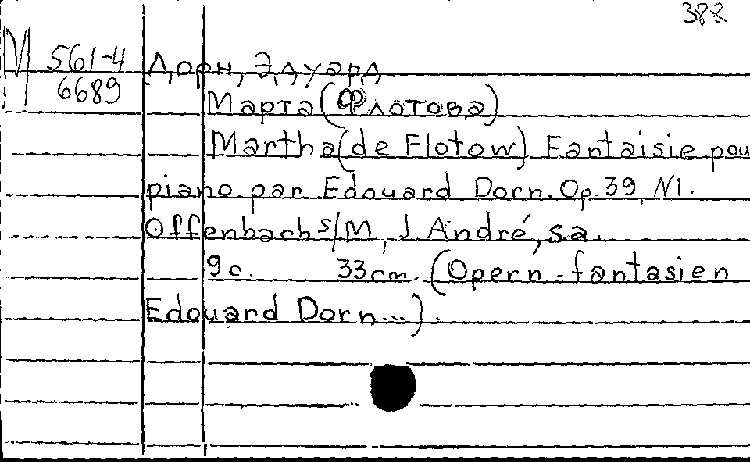 388
М 561-4 Дорн, Эдуард
6689
Марта (Флотова)
Martha (de Flotow). Fantaisie pou
piano par Edouard Dorn. Op. 39, N1.
Offenbach s/M, J. André, s.a.
9 c. 33 cm. (Opern-fantasien
Edouard Dorn...).